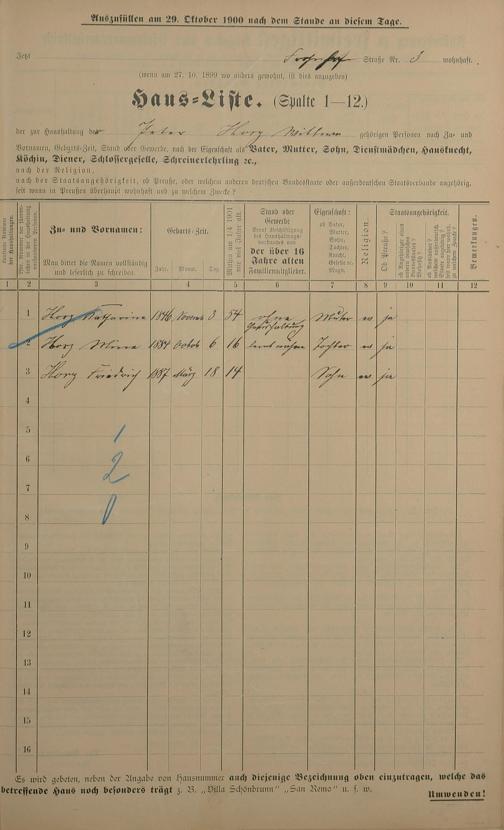 Auszufüllen am 29. Oktober 1900 nach dem Stande an diesem Tage.
Jetzt Straße Nr. 3 wohnhaft.
(wenn am 27. 10. 1899 wo anders gewohnt, ist dies anzugeben)
Haus-Liste. (Spalte 1—12.)
der zur Haushaltung des Peter Horz Witwe gehörigen Personen nach Zu- und
Vornamen, Geburts-Zeit, Stand oder Gewerbe, nach der Eigenschaft als Vater, Mutter, Sohn, Dienstmädchen, Hausknecht,
Köchin, Diener, Schlossergeselle, Schreinerlehrling ꝛc.,
nach der Religion,
nach der Staatsangehörigkeit, ob Preuße, oder welchem anderen deutschen Bundesstaate oder außerdeutschen Staatsverbande angehörig.
seit wann in Preußen überhaupt wohnhaft und zu welchem Zwecke?
Zu- und Vornamen:
Man bittet die Namen vollständig
und leserlich zu schreiben.
Geburts-Zeit.
Jahr. Monat. Tag.
Mithin am 1/4 1901
wie viel Jahre alt.
Stand oder
Gewerbe
der über 16
Jahre alten
Familienmitglieder.
Eigenschaft:
ob Vater,
Mutter,
Sohn,
Tochter,
Knecht,
Geselle o.
Magd.
Religion
Staatsangehörigkeit.
Ob Preuße?
Bemerkungen.
1 2 3 4 5 6 7 8 9 10 11 12
1 Horz Katharine 1846 Novemb 3 54 ohne Mutter ev ja
2 Horz Mina 1884 Octob 6 16 Tochter ev ja
3 Horz Friedrich 1887 März 18 14 Sohn ev ja
4
5
1
6
2
7
8
0
9
10
11
12
13
14
15
16
Es wird gebeten, neben der Angabe von Hausnummer auch diejenige Bezeichnung oben einzutragen, welche das
betreffende Haus noch besonders trägt z. B. „Villa Schönbrunn" „San Remo" u. s. w.
Umwenden!